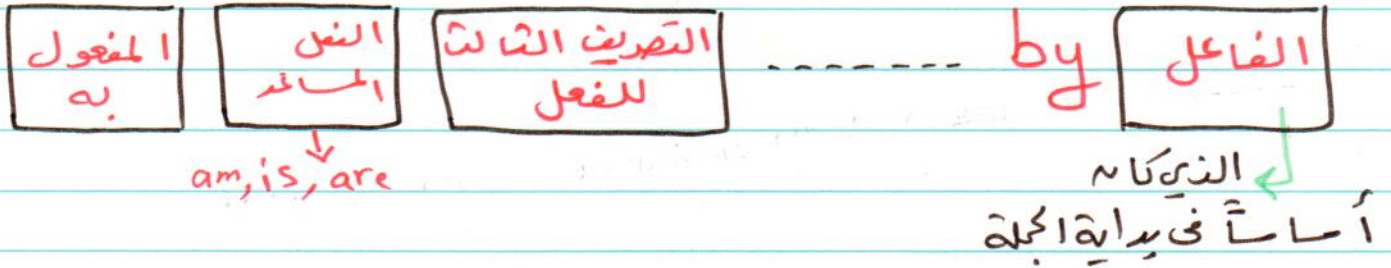 المفعول به
الفعل المساعد
التصريف الثالث للفعل
-------- by
الفاعل
am, is, are
الذي كان
أساساً في بداية الجملة